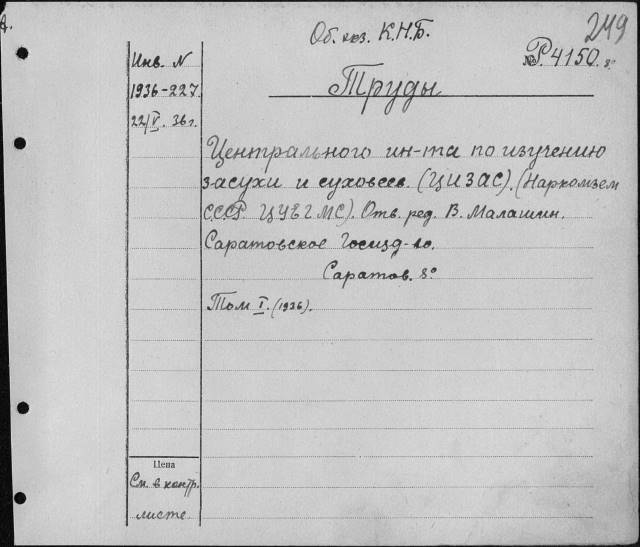 249
Об. экз. К.Н.Б.
№ Р.4150. 8°
Инв. N
1936-227.
22/V. 36 г.
Труды
Центрального ин-та по изучению
засухи и суховеев. (ЦИЗАС). (Наркомзем
СССР ЦУЕГМС). Отв. ред. В. Малашин.
Саратовское Госизд-во.
Саратов. 8°
Том I. (1936).
Цена
См. в контр.
листе.